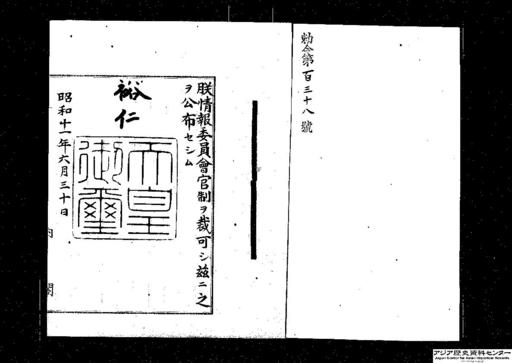 勅令第百三十八號
朕情報委員會官制ヲ裁可シ茲ニ之
ヲ公布セシム
裕仁
天皇
御璽
昭和十一年六月三十日
内閣
アジア歴史資料センター
Japan Center for Asian Historical Records